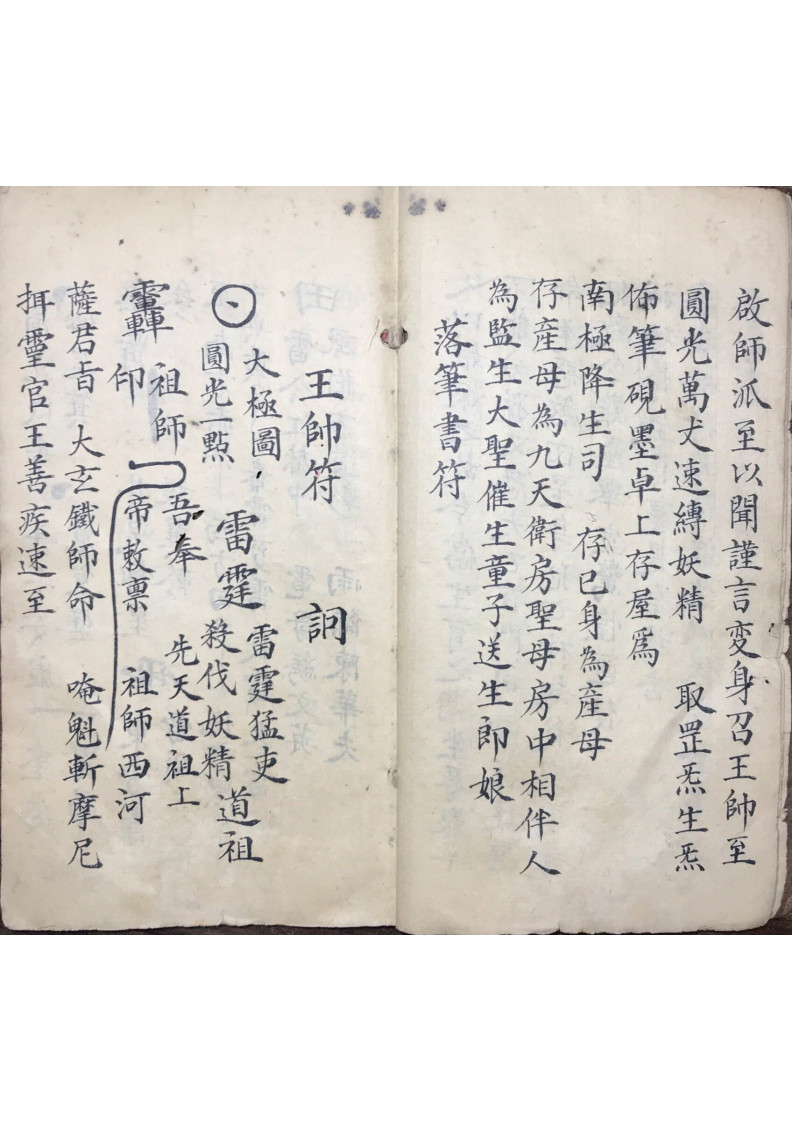 啟師派至以聞謹言変身召王帥至
圓光萬丈速縛妖精　取罡炁生炁
佈筆硯墨卓上存屋為
南極降生司　存已身為產母
存產母為九天衛房聖母房中相伴人
為監生大聖催生童子送生郎娘
落筆書符
王帥符　詞
大極圖　雷霆猛吏
圓光一點　雷霆　殺伐妖精　道祖
祖師　吾奉　先天道祖上
印　帝敕禀　祖師西河
薩君旨　大玄鐵師命　唵魁斬摩尼
揖靈官王善疾速至